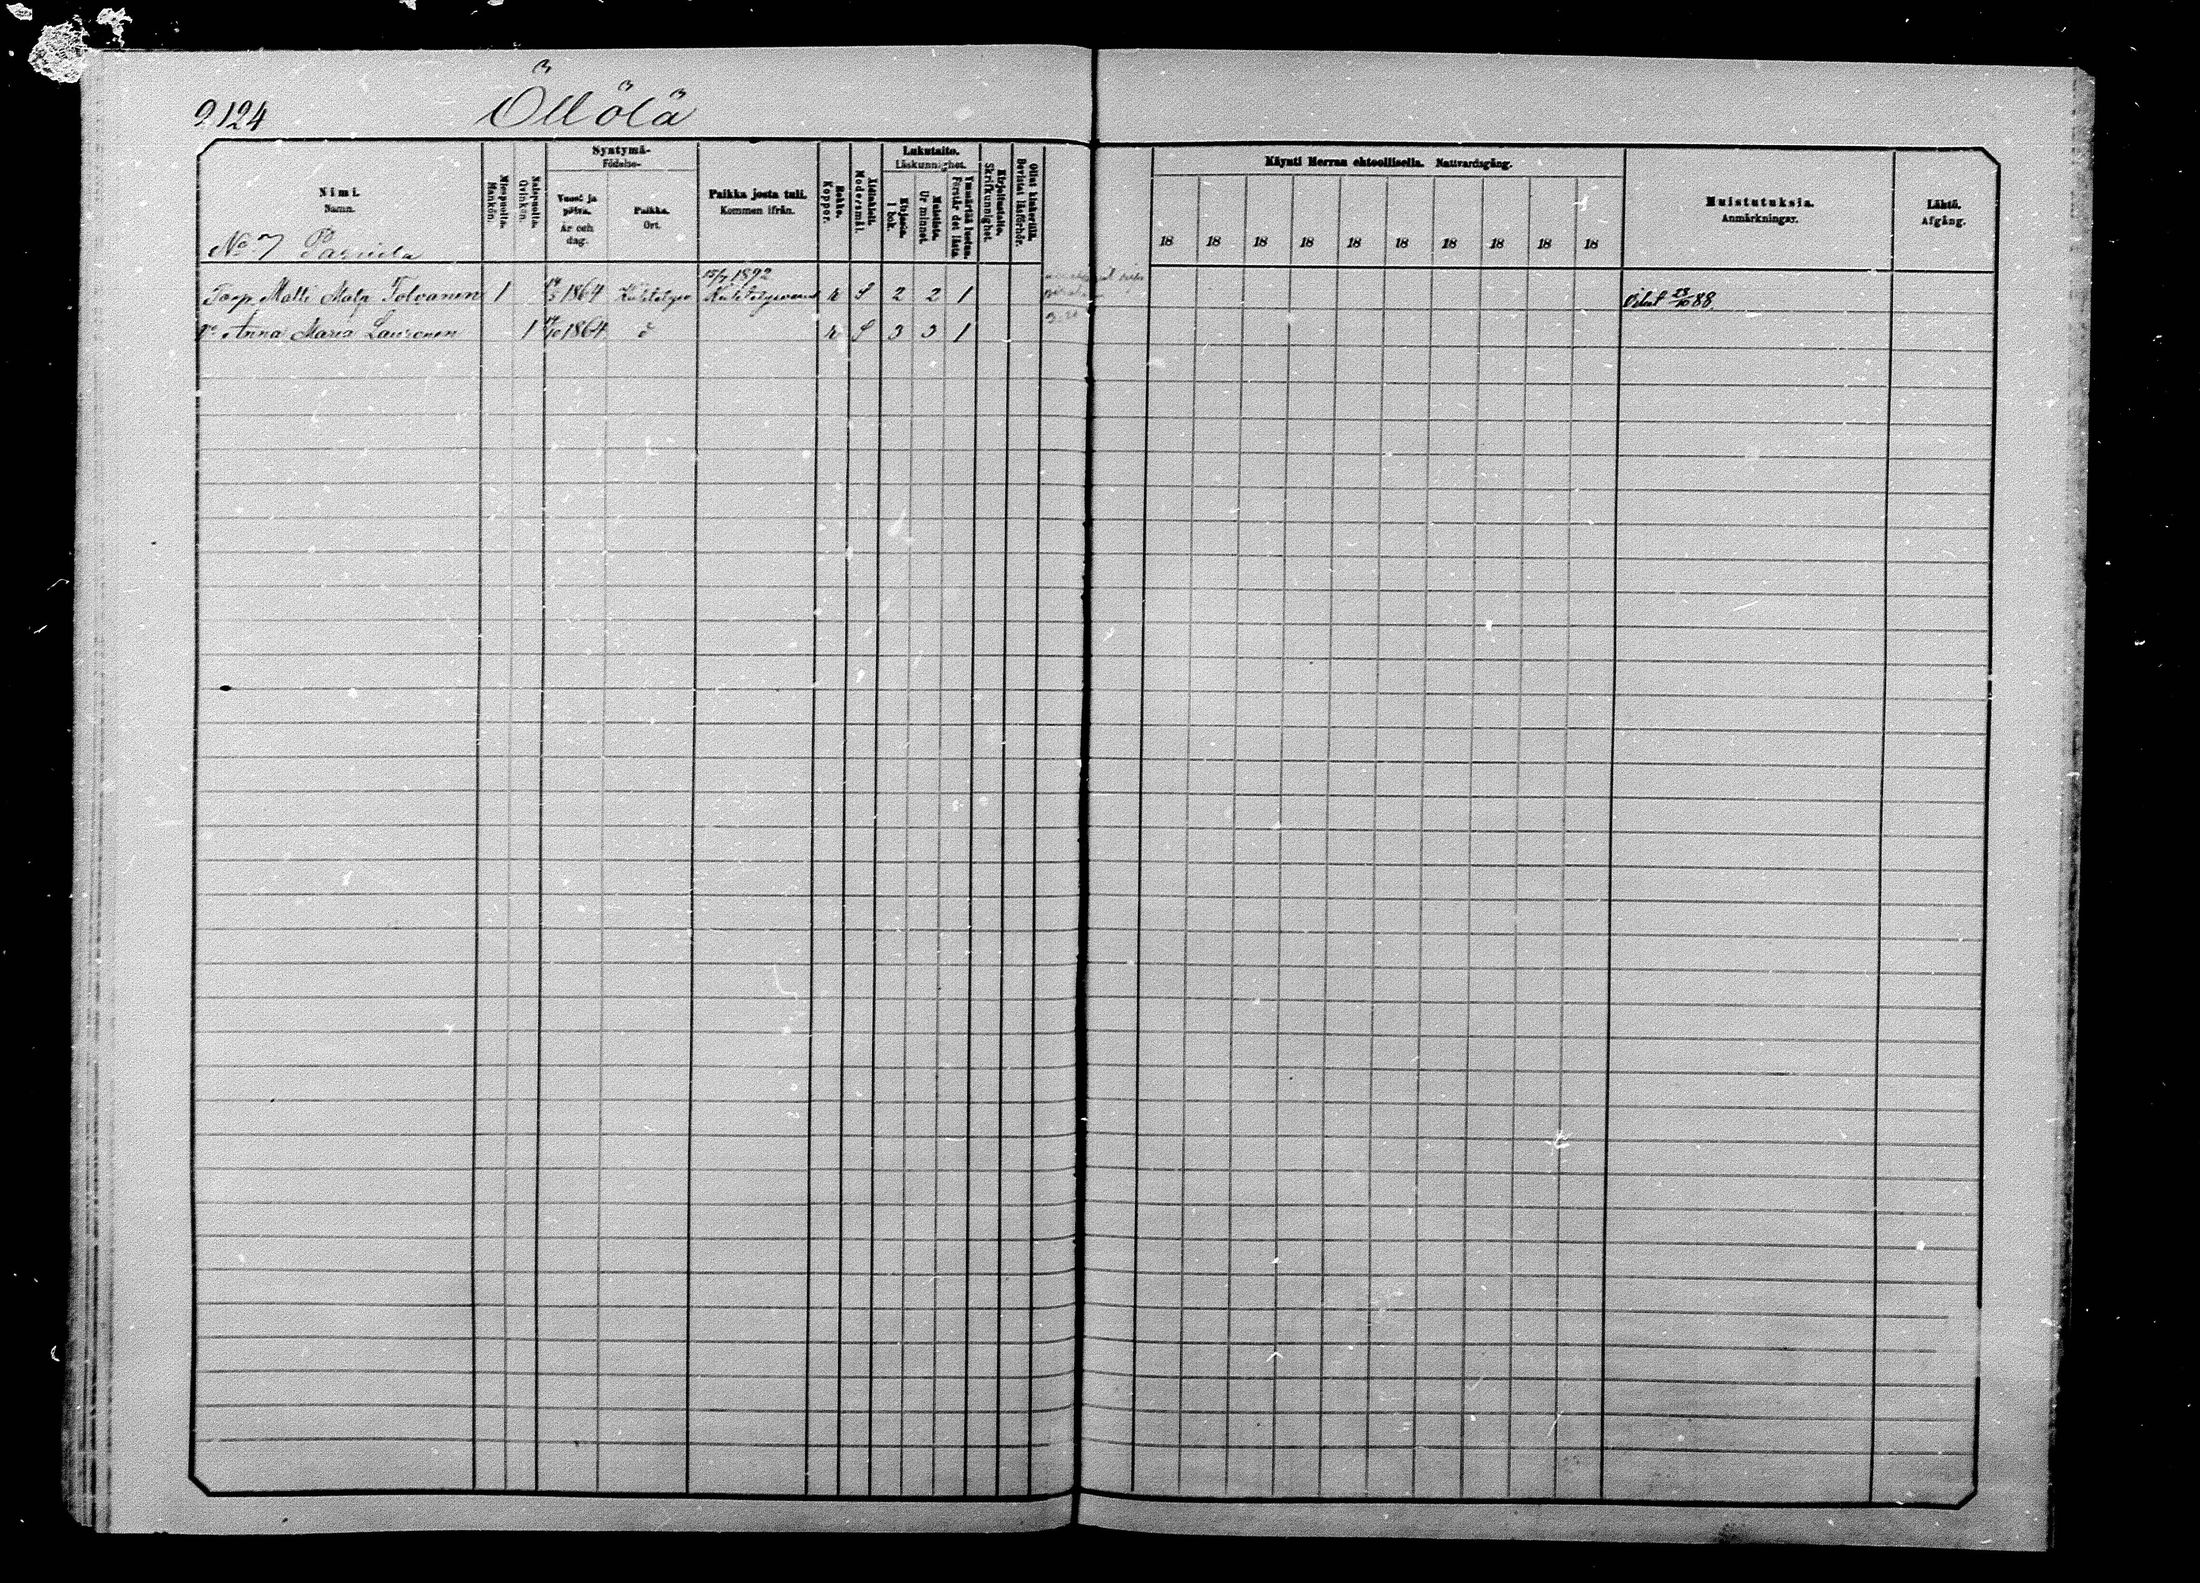 2124
Öllölä
Nimi.
Namn.
Miespuolia.
Mankön.
Naispuolia.
Qvinkön.
Syntymä-
Födelse-
Vuosi ja
päivä.
År och
dag.
Paikka.
Ort.
Paikka josta tuli.
Kommen ifrån.
Rokko.
Koppor.
Äidinkieli.
Modersmål.
Lukutaito.
Läskunnighet.
Kirjasta.
I bok.
Muistista.
Ur minnet.
Ymmärtää luetun.
Förstår det lästa
Kirjoitustaito.
Skrifkunnighet.
Ollut lukusilla.
Bevistat läsförhör.
Käynti Herran ehtoollisella. Nattvardsgång.
18 18 18 18 18 18 18 18 18 18
Muistutuksia.
Anmärkningar.
Lähtö.
Afgång.
No 7
15/7 1892
Matti Matp Tolvanen 1 1864 2 2 1 23/10 88.
Anna Maria Lauronen 1 1864 S 3 3 1